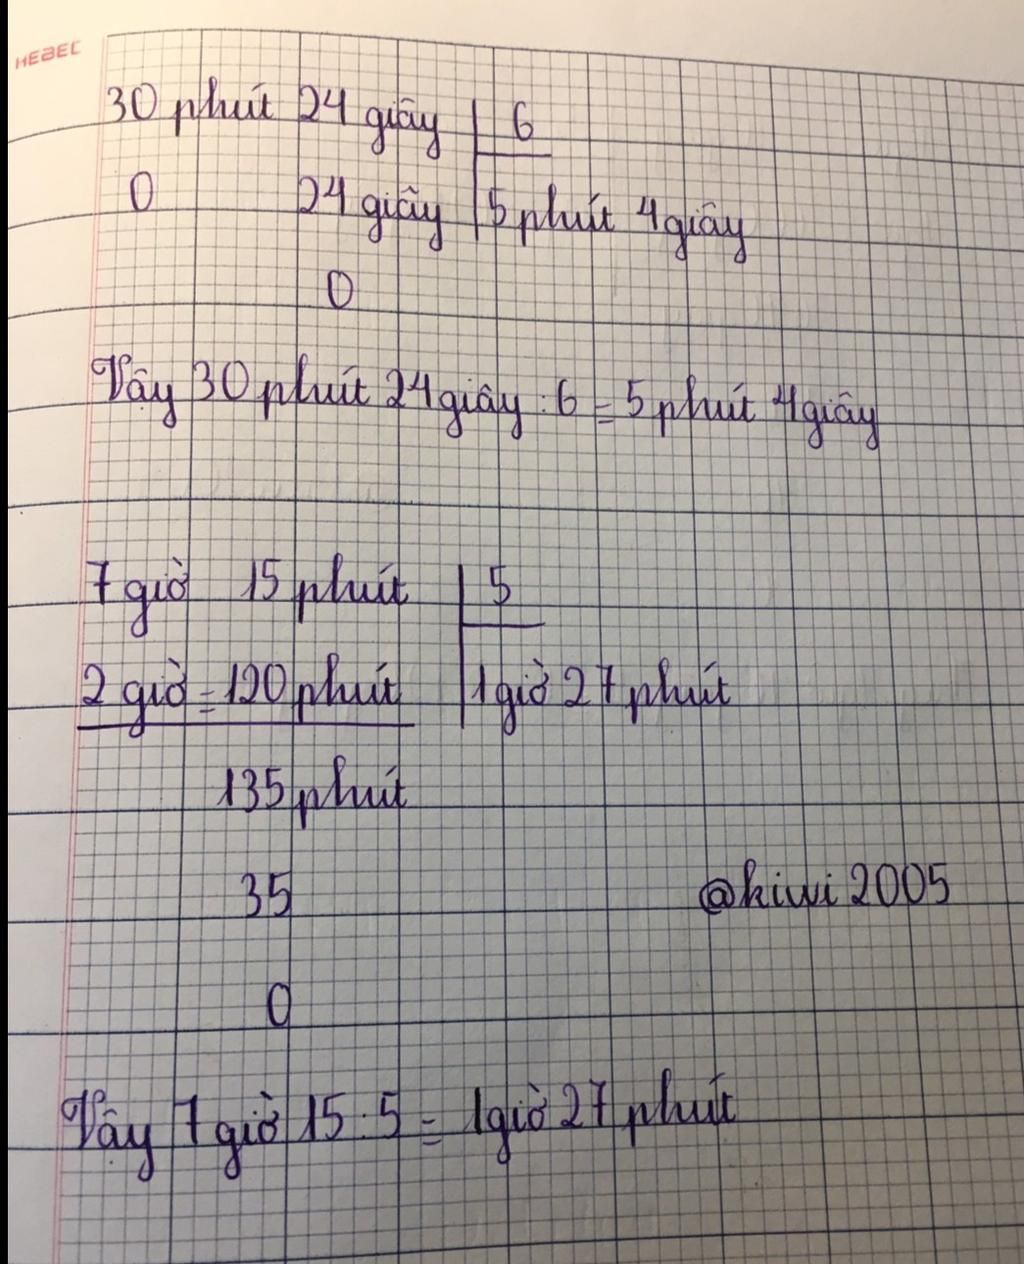 HEBEC
30 phút 24 giây | 6
0 24 giây | 5 phút 4 giây
0
Vậy 30 phút 24 giây : 6 = 5 phút 4 giây
7 giờ 15 phút | 5
2 giờ = 120 phút | 1 giờ 27 phút
135 phút
35
@kiwi 2005
0
Vậy 7 giờ 15 : 5 = 1 giờ 27 phút